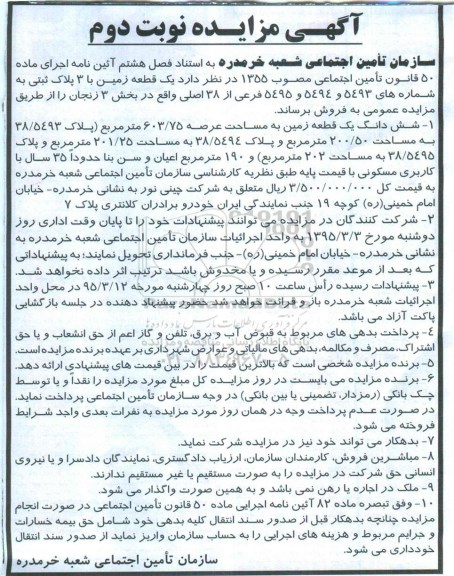 آگهـی مزایـده نوبـت دوم
سـازمان تأمین اجتماعی شعبه خرمدره به استناد فصل هشتم آئین نامه اجرای ماده
۵۰ قانـون تأمین اجتماعی مصـوب ۱۳۵۵ در نظر دارد یک قطعه زمین با ۳ پلاک ثبتی به
شـماره های ۵۴۹۳ و ۵۴۹۴ و ۵۴۹۵ فرعی از ۳۸ اصلی واقع در بخش ۳ زنجان را از طریق
مزایده عمومی به فروش برساند.
۱- شش دانـگ یک قطعه زمین به مساحت عرصـه ۶۰۳/۷۵ مترمربع (پـلاک ۳۸/۵۴۹۳
بـه مسـاحت ۲۰۰/۵۰ مترمربع و پـلاک ۳۸/۵۴۹۴ به مساحت ۲۰۱/۲۵ مترمربع و پلاک
۳۸/۵۴۹۵ به مساحت ۲۰۲ مترمربع) و ۱۹۰ مترمربع اعیان و سـن بنا حدوداً ۳۵ سـال با
کاربری مسکونی با قیمت پایه طبق نظریه کارشناسی سازمان تأمین اجتماعی شعبه خرمدره
به قیمت کل ۳/۵۰۰/۰۰۰/۰۰۰ ریال متعلق به شرکت چینی نور به نشانی خرمدره- خیابان
امام خمینی(ره) کوچه ۱۹ جنب نمایندگی ایران خودرو برادران کلانتری پلاک ۷
۲- شـرکت کنندگان در مزایده می توانند پیشنهادات خود را تا پایان وقت اداری روز
دوشنبه مورخ ۱۳۹۵/۳/۳ به واحد اجرائیات سازمان تأمین اجتماعی شعبه خرمدره به
نشانی خرمدره- خیابان امام خمینی(ره)- جنب فرمانداری تحویل نمایند؛ به پیشنهاداتی
کـه بعـد از موعد مقرر رسـیده و یا مخدوش باشـد ترتیب اثر داده نخواهد شـد.
۳- پیشنهادات رسیده رأس ساعت ۱۰ صبح روز چهارشنبه مورخه ۹۵/۳/۱۲ در محل واحد
اجرائیات شعبه خرمدره باز و قرائت خواهد شد. حضور پیشنهاد دهنده در جلسه بازگشایی
پاکت آزاد می باشد.
۴- پرداخت بدهی های مربوط به قبوض آب و برق، تلفن و گاز اعم از حق انشعاب و یا حق
اشتراک، مصرف و مکالمه، بدهی های مالیاتی و عوارض شهرداری بر عهده برنده مزایده است.
۵- برنده مزایده شخصی است که بالاترین قیمت را در بین قیمت های پیشنهادی ارائه دهد.
۶- برنـده مزایـده می بایسـت در روز مزایـده کل مبلغ مورد مزایده را نقداً و یا توسط
چـک بانکی (رمزدار، تضمینی یا بین بانکی) در وجه سـازمان تأمین اجتماعی پرداخت نماید.
در صورت عـدم پرداخت وجه در همان روز مورد مزایده به نفرات بعدی واجد شـرایط
فروخته می شود.
۷- بدهکار می تواند خود نیز در مزایده شرکت نماید.
۸- مباشـرین فروش، کارمندان سازمان، ارزیاب دادگستری، نمایندگان دادسرا و یا نیروی
انسانی حق شرکت در مزایده را به صورت مستقیم یا غیر مستقیم ندارند.
۹- ملک در اجاره یا رهن نمی باشد و به همین صورت واگذار می شود.
۱۰- وفق تبصره ماده ۸۲ آئین نامه اجرایی ماده ۵۰ قانون تأمین اجتماعی در صورت انجام
مزایده چنانچه بدهکار قبل از صدور سند انتقال کلیه بدهی خود شامل حق بیمه خسارات
و جرایم مربوط و هزینه های اجرایی را به حساب سازمان واریز نماید از صدور سند انتقال
خودداری می شود.
سازمان تأمین اجتماعی شعبه خرمدره